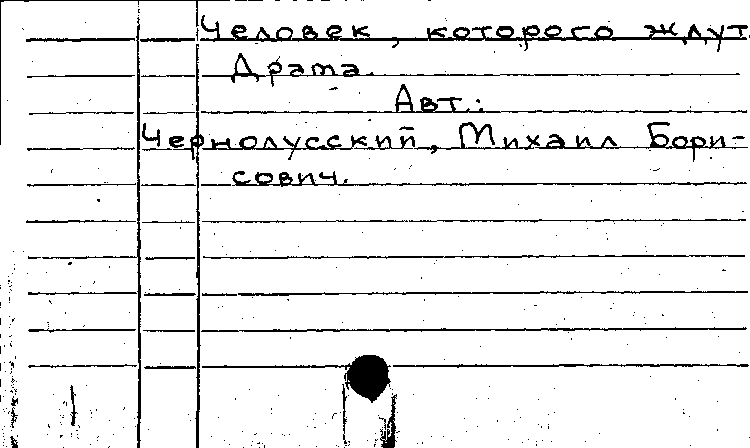 Человек, которого ждут
Драма.
Авт.:
Чернолусский, Михаил Бори-
сович.